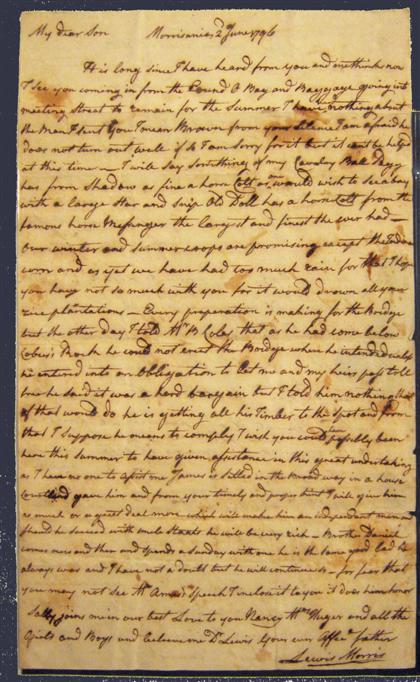 My dear Son Morrisania 2d June 1796
It is long since I have heard from you and methinks now
I see you coming in from the Round O Bay and Baggage going into
meeting Street to remain for the summer I have nothing about
the Man I sent you I mean Brown from your silence I am afraid he
does not turn out well if so I am sorry for it but it cant be helped
at this time – I will say something of my Cavalry Ball Peggy
has from Shadow as fine a horse Colt as one would wish to see a bay
with a large Star and Snip Old Doll has a horse Colt from the
famous horse Messenger the largest and finest she ever had –
Our winter and summer crops are promising except the Indian
corn and as yet we have had too much rain for that I hope
you have not so much with you for it would drown all your
rice plantations – Every preparation is making for the Bridge
but the other day I told Mr B Coles that as he had come below
Cobus's Rock he could not erect the Bridge where he intended unless
he entered into an Obligation to let me and my heirs pass toll
free he said it was a hard bargain but I told him nothing short
of that would do he is getting all his Timber to the spot and from
that I suppose he means to comply I wish you could possibly been
here this summer to have given assistance in this great undertaking
as I have no one to assist me James is settled in the Broad way in a house
gave him and from your timely and proper hint I will give him
as much or a great deal more which will make him an independent man
should he succeed with uncle Staats he will be very rich – Brother Daniel
comes now and then and spends a Sunday with me he is the same good lad he
always was and I have not a doubt but he will continue so – for fear that
you may not see Mr Ames's Speech I inclose it to you it does him honor
Sally joins me in our best Love to you Nancy Mrs Huger and all the
Girls and Boys and believe me Dr Lewis Your ever Affec Father
Lewis Morris